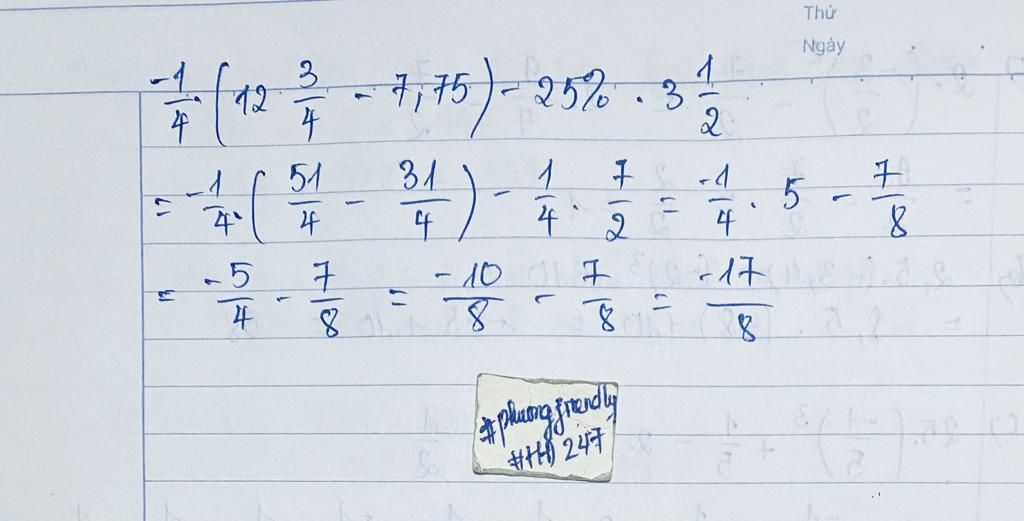 Thứ
Ngày
-1/4 . (12 3/4 - 7,75) - 25% . 3 1/2
= -1/4 . (51/4 - 31/4) - 1/4 . 7/2 = -1/4 . 5 - 7/8
= -5/4 - 7/8 = -10/8 - 7/8 = -17/8
#phuongfriendly
#HĐ 247